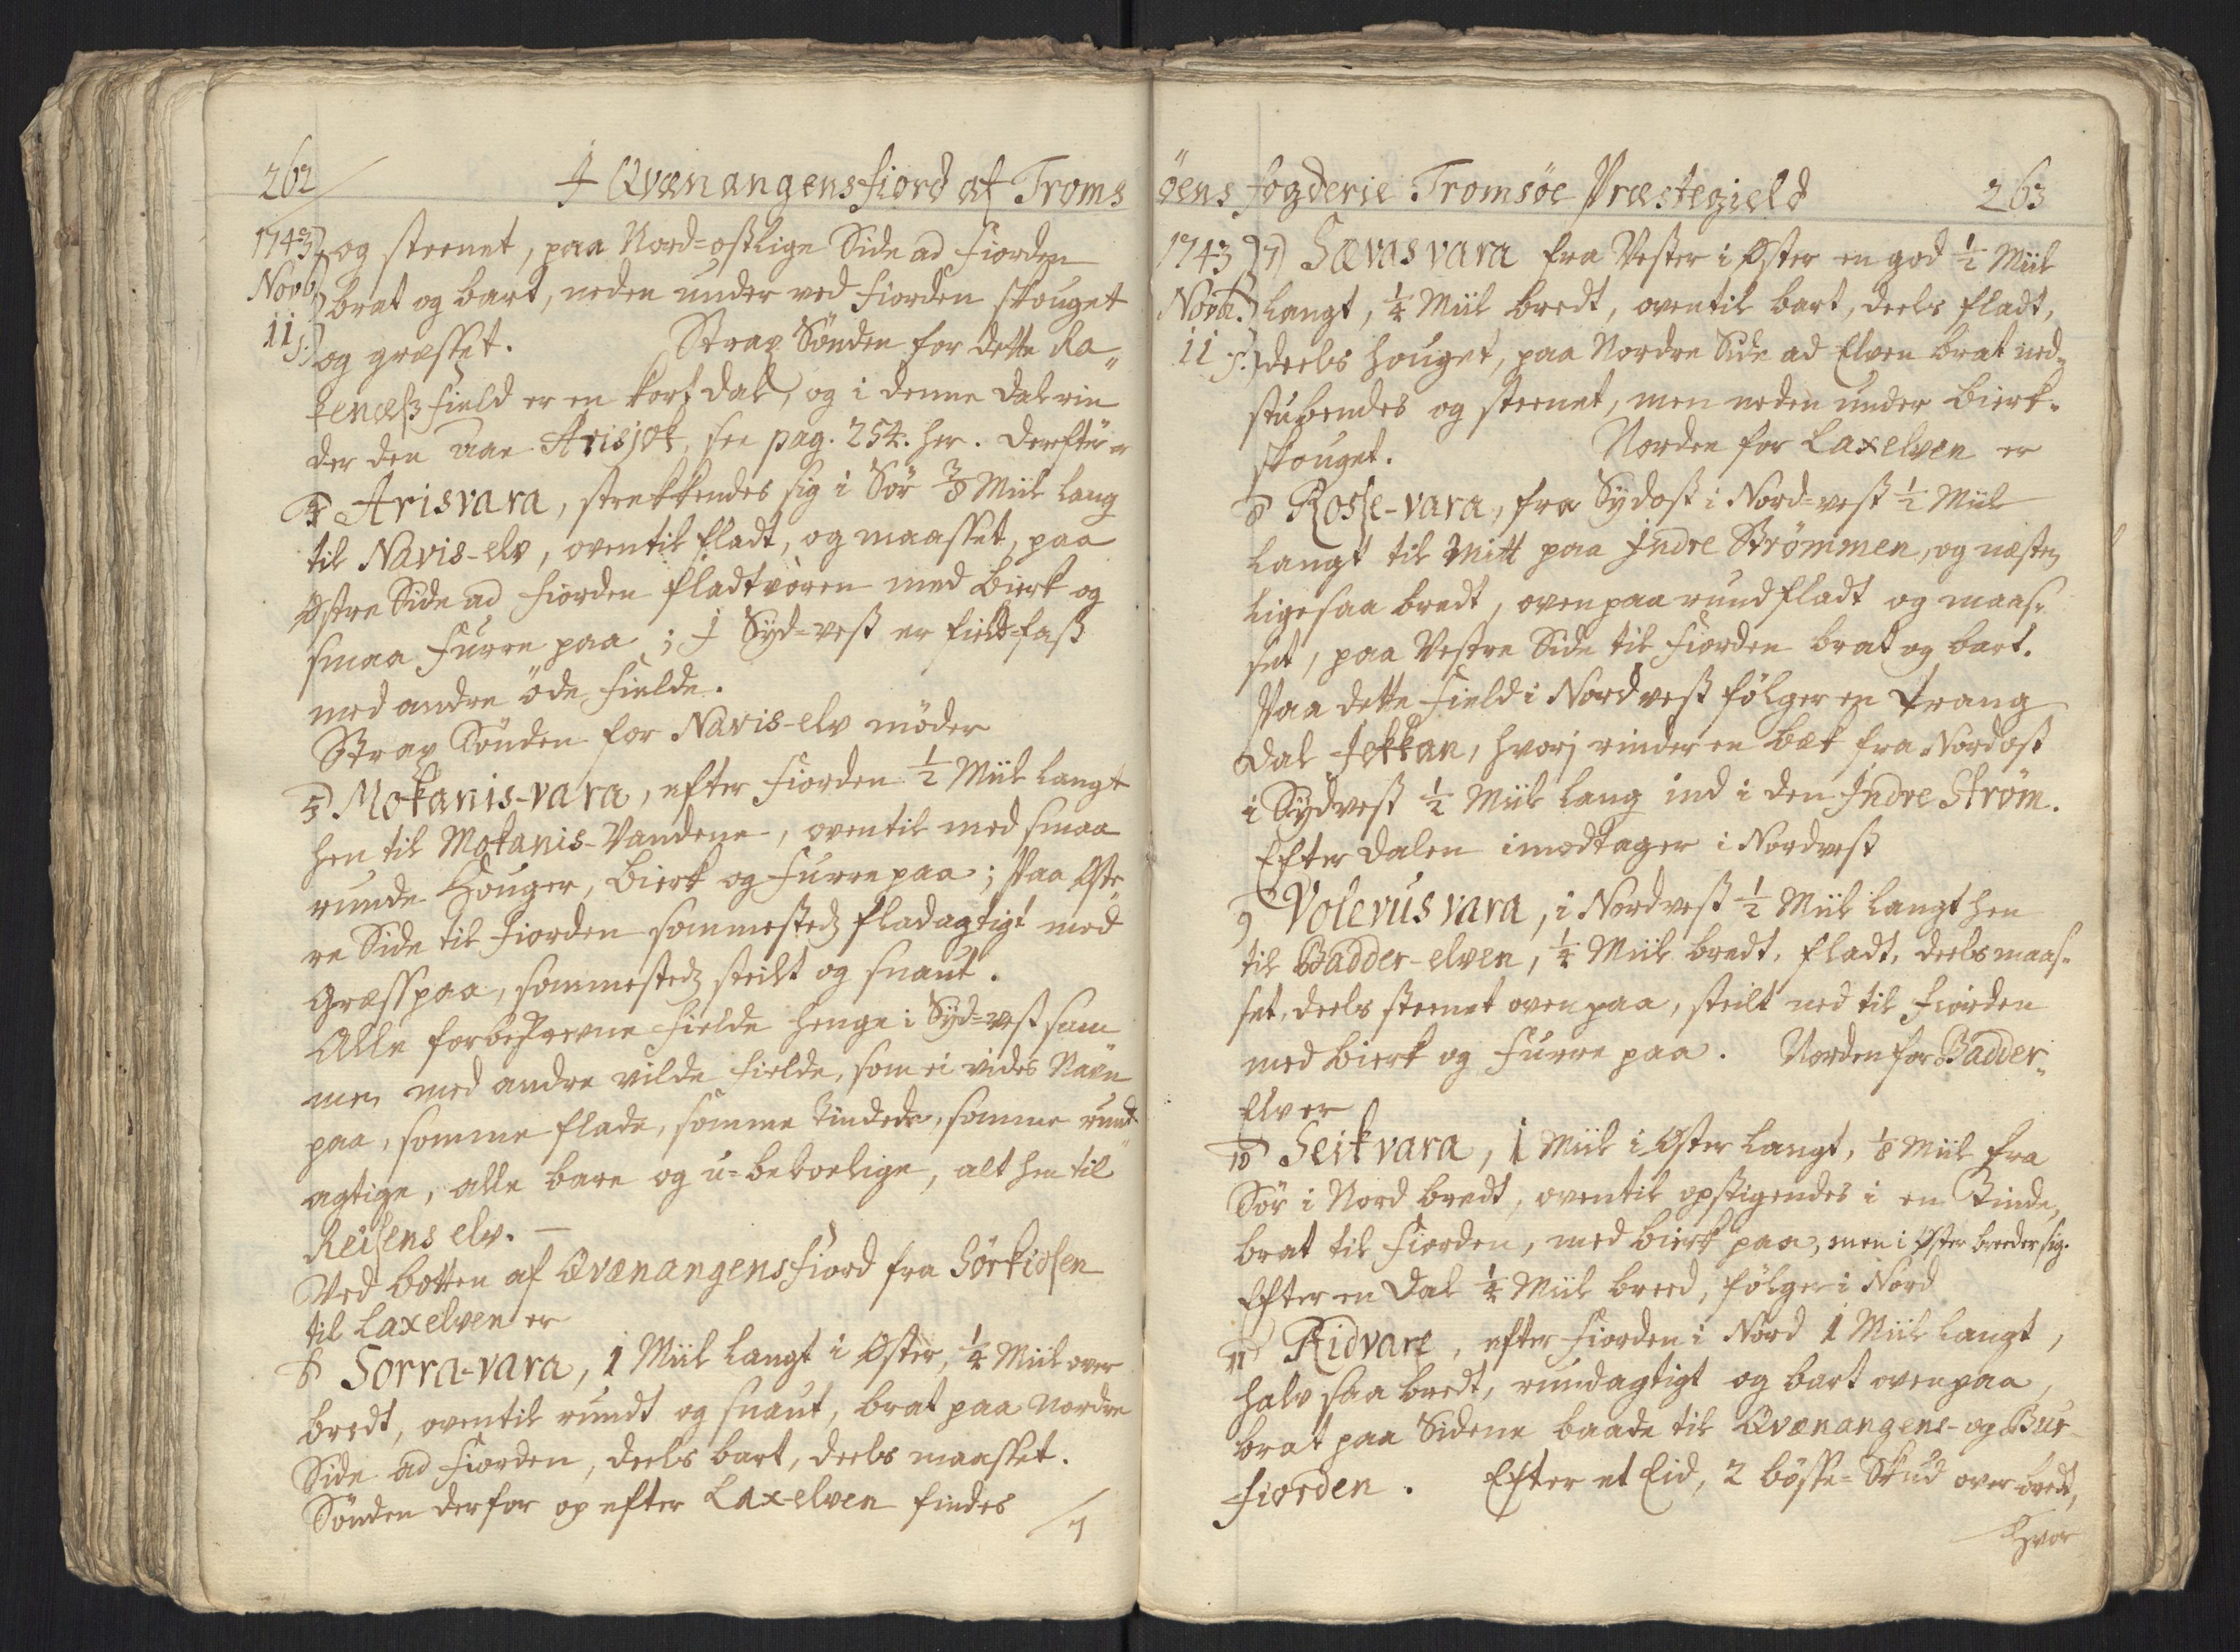 262
I Qvænangensfiord af Troms
1743) og steenet, paa Nord=ostlige Side ad Fiorden
Novb) brat og bart, neden under ved Fiorden skouget
11 f.) og græsset. Strax Sönden for dette Ra„
kenæss field er en kort dal, og i denne dal rin
der den aae Arisjok, see pag. 254. her. Derefter er
4) Arisvara, strekkendes sig i Sör 3/8 Miil lang
til Navis-elv, oventil fladt, og maasset, paa
Østre Side ad Fiorden fladtvoren med Bierk og
smaa Furre paa; I Syd=vest er field=fast
med andre öde Fielde.
Strax Sönden for Navis-elv möder
5) Mokanis-vara, efter Fiorden 1/2 Miil langt
hen til Mokanis-Vandene, oventil med smaa
runde Houger, Bierk og Furre paa; Paa Øst„
re Side til Fiorden sommested fladagtigt med
Græss paa, sommested steilt og snaut.
Alle forbeskrevne Fielde henge i Syd=vest sam„
men med andre vilde Fielde, som ei vides Navn
paa, somme flade, somme Tindede, somme rund„
agtige, alle bare og u=beboelige, alt hen til
Reisens elv. —
Ved botten af Qvænangensfiord fra Sörkiosen
til Laxelven er
6) Sorra-vara, 1 Miil langt i Øster, 1/4 Miil over
bredt, oventil rundt og snaut, brat paa Nordre
Side ad Fiorden, deels bart, deels maasset.
Sönden derfor op efter Laxelven findes
7
öens fogderie Tromsöe Præstegield
263
1743) 7) Sævasvara fra Vester i Øster en god 1/2 Miil
Novb.) langt, 1/4 Miil bredt, oventil bart, deels fladt,
11 f.) deels houget, paa Nordre Side ad Elven brat ned„
stubendes og steenet, men neden under Bierk-
skouget. Norden for Laxelven er
8) Rosse-vara, fra Sydost i Nord=vest 1/2 Miil
langt til mitt paa Indre Strömmen, og næsten
ligesaa bredt, oven paa rundfladt og maas„
set, paa Vestre Side til Fiorden brat og bart.
Paa dette Field i Nordvest fölger en trang
Dal Jekkan, hvorj rinder en bæk fra Nordost
i Sydvest 1/2 Miil lang ind i den Indre Ström.
Efter Dalen imodtager i Nordvest
9) Volerusvara, i Nordvest 1/2 Miil langt hen
til Badder-elven, 1/4 Miil bredt, fladt, deels maas„
set, deels steenet oven paa, steilt ned til Fiorden
med Bierk og Furre paa. Norden for Badder„
elv er
10) Seikvara, 1 Miil i Øster langt, 1/8 Miil fra
Sör i Nord bredt, oventil opstigendes i en Tinde,
brat til Fiorden, med Bierk paa, men i Øster breeder sig.
Efter en Dal 1/4 Miil breed, fölger i Nord
11) Ridvare, efter Fiorden i Nord 1 Miil langt,
halv saa bredt, rundagtigt og bart oven paa,
brat paa Sidene baade til Qvænangens- og Bur-
fiorden. Efter et Eid, 2 bösse=Skud over bredt,
hvor